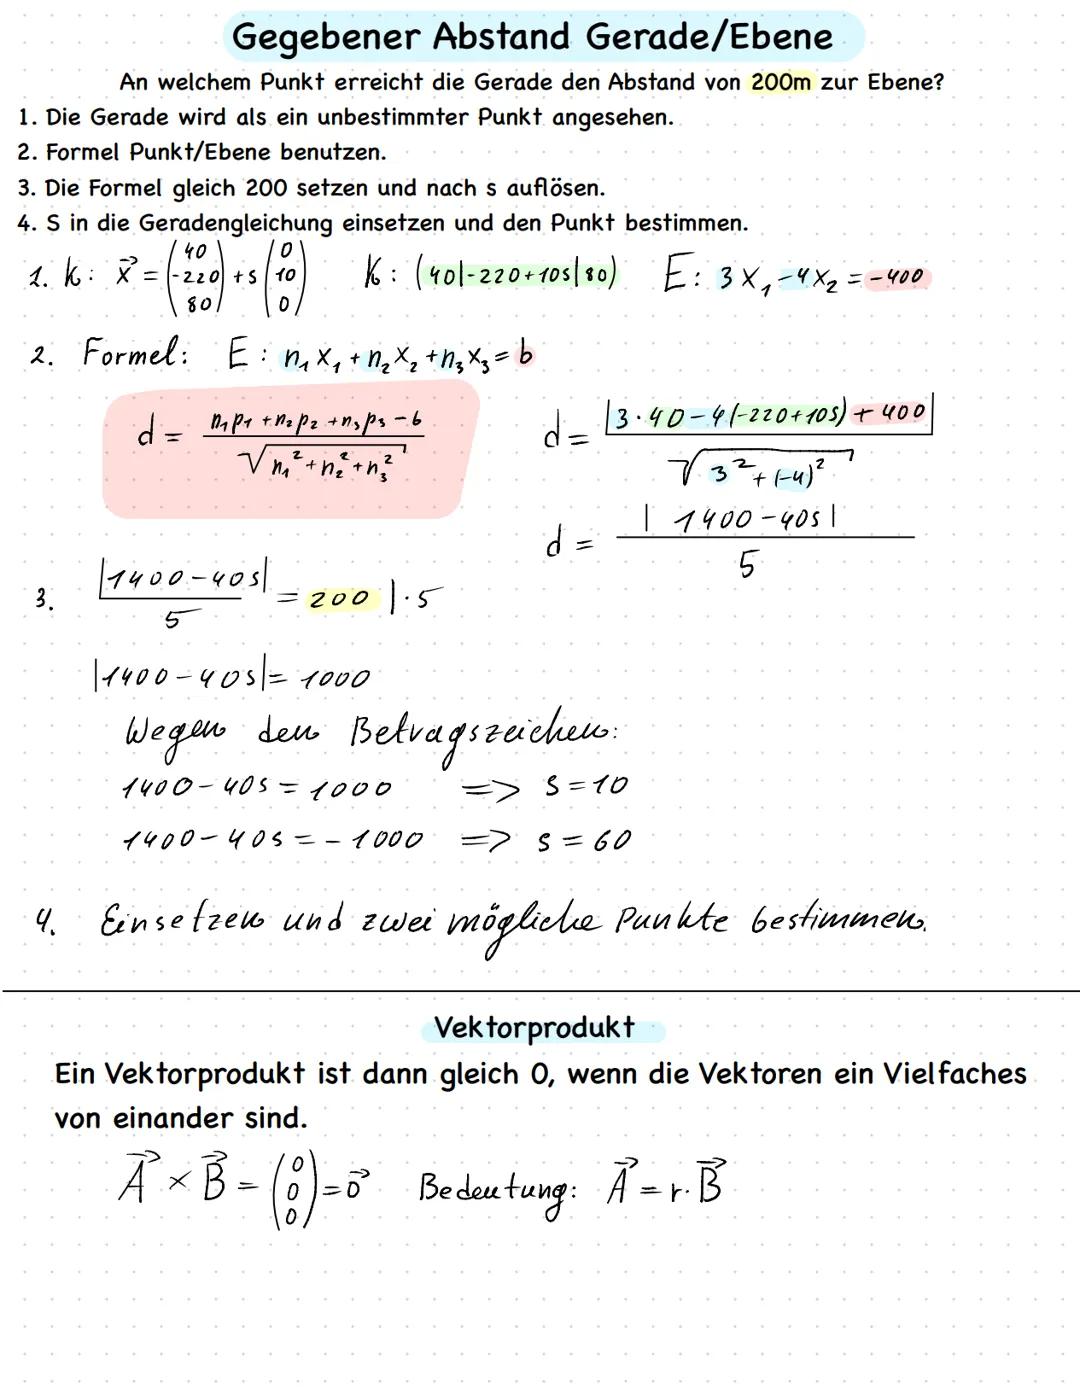 Gegebener Abstand Gerade/Ebene
An welchem Punkt erreicht die Gerade den Abstand von 200m zur Ebene?
1. Die Gerade wird als ein unbestimmter Punkt angesehen.
2. Formel Punkt/Ebene benutzen.
3. Die Formel gleich 200 setzen und nach s auflösen.
4. S in die Geradengleichung einsetzen und den Punkt bestimmen.
1. k: x⃗ = (40 -220 80) + s (0 10 0) K: (40|-220+10s|80) E: 3x₁-4x₂=-400
2. Formel: E: n₁x₁+n₂x₂+n₃x₃=b
d = (n₁p₁+n₂p₂+n₃p₃-b)/√(n₁²+n₂²+n₃²) d = |3·40-4(-220+10s)+400|/√(3²+(-4)²)
d = |1400-40s|/5
3. |1400-40s|/5 = 200 |·5
|1400-40s|=1000
Wegen den Betragszeichen:
1400-40s=1000 => s=10
1400-40s=-1000 => s=60
4. Einsetzen und zwei mögliche Punkte bestimmen.
Vektorprodukt
Ein Vektorprodukt ist dann gleich 0, wenn die Vektoren ein Vielfaches
von einander sind.
A⃗ × B⃗ = (0 0 0) = 0⃗ Bedeutung: A⃗ = r·B⃗